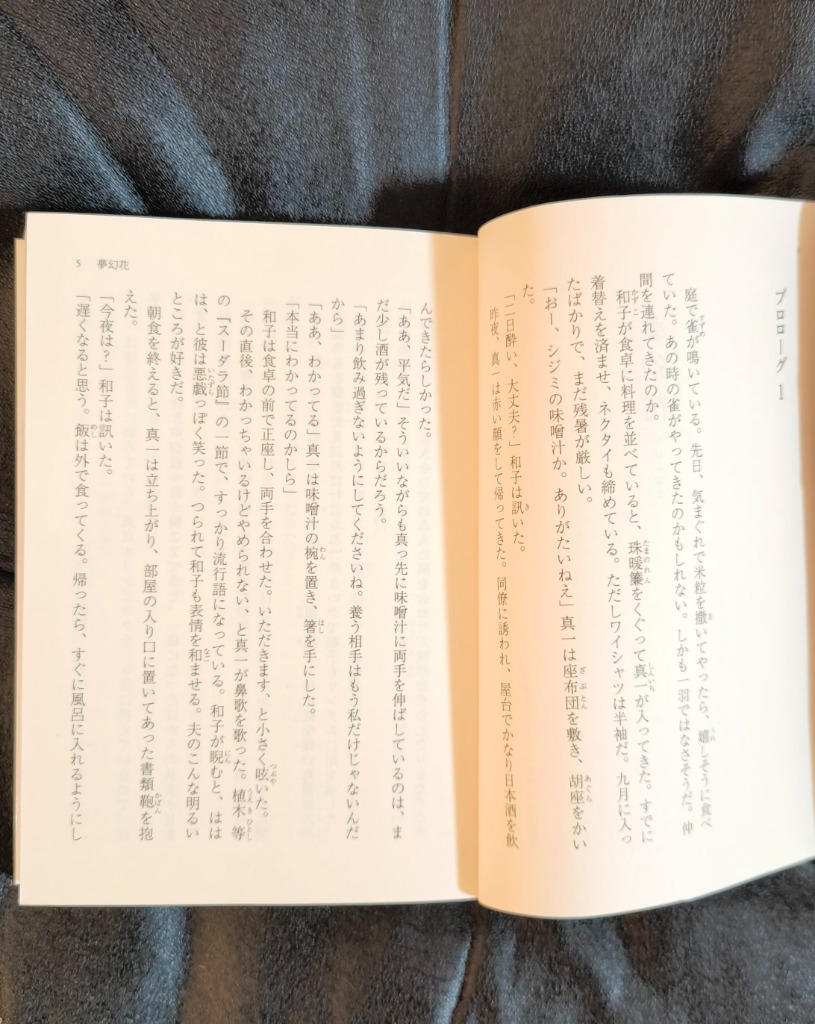 プロローグ 1
庭で雀が鳴いている。先日、気まぐれで米粒を撒いてやったら、嬉しそうに食べ
ていた。あの時の雀がやってきたのかもしれない。しかも一羽ではなさそうだ。仲
間を連れてきたのか。
和子が食卓に料理を並べていると、珠暖簾をくぐって真一が入ってきた。すでに
着替えを済ませ、ネクタイも締めている。ただしワイシャツは半袖だ。九月に入っ
たばかりで、まだ残暑が厳しい。
「おー、シジミの味噌汁か。ありがたいねえ」真一は座布団を敷き、胡座をかい
た。
「二日酔い、大丈夫?」和子は訊いた。
昨夜、真一は赤い顔をして帰ってきた。同僚に誘われ、屋台でかなり日本酒を飲
んできたらしかった。
「ああ、平気だ」そういいながらも真っ先に味噌汁に両手を伸ばしているのは、ま
だ少し酒が残っているからだろう。
「あまり飲み過ぎないようにしてくださいね。養う相手はもう私だけじゃないんだ
から」
「ああ、わかってる」真一は味噌汁の椀を置き、箸を手にした。
「本当にわかってるのかしら」
和子は食卓の前で正座し、両手を合わせた。いただきます、と小さく呟いた。
その直後、わかっちゃいるけどやめられない、と真一が鼻歌を歌った。植木等
の『スーダラ節』の一節で、すっかり流行語になっている。和子が睨むと、はは
は、と彼は悪戯っぽく笑った。つられて和子も表情を和ませる。夫のこんな明るい
ところが好きだ。
朝食を終えると、真一は立ち上がり、部屋の入り口に置いてあった書類鞄を抱
えた。
「今夜は?」和子は訊いた。
「遅くなると思う。飯は外で食ってくる。帰ったら、すぐに風呂に入れるようにし
5 夢幻花